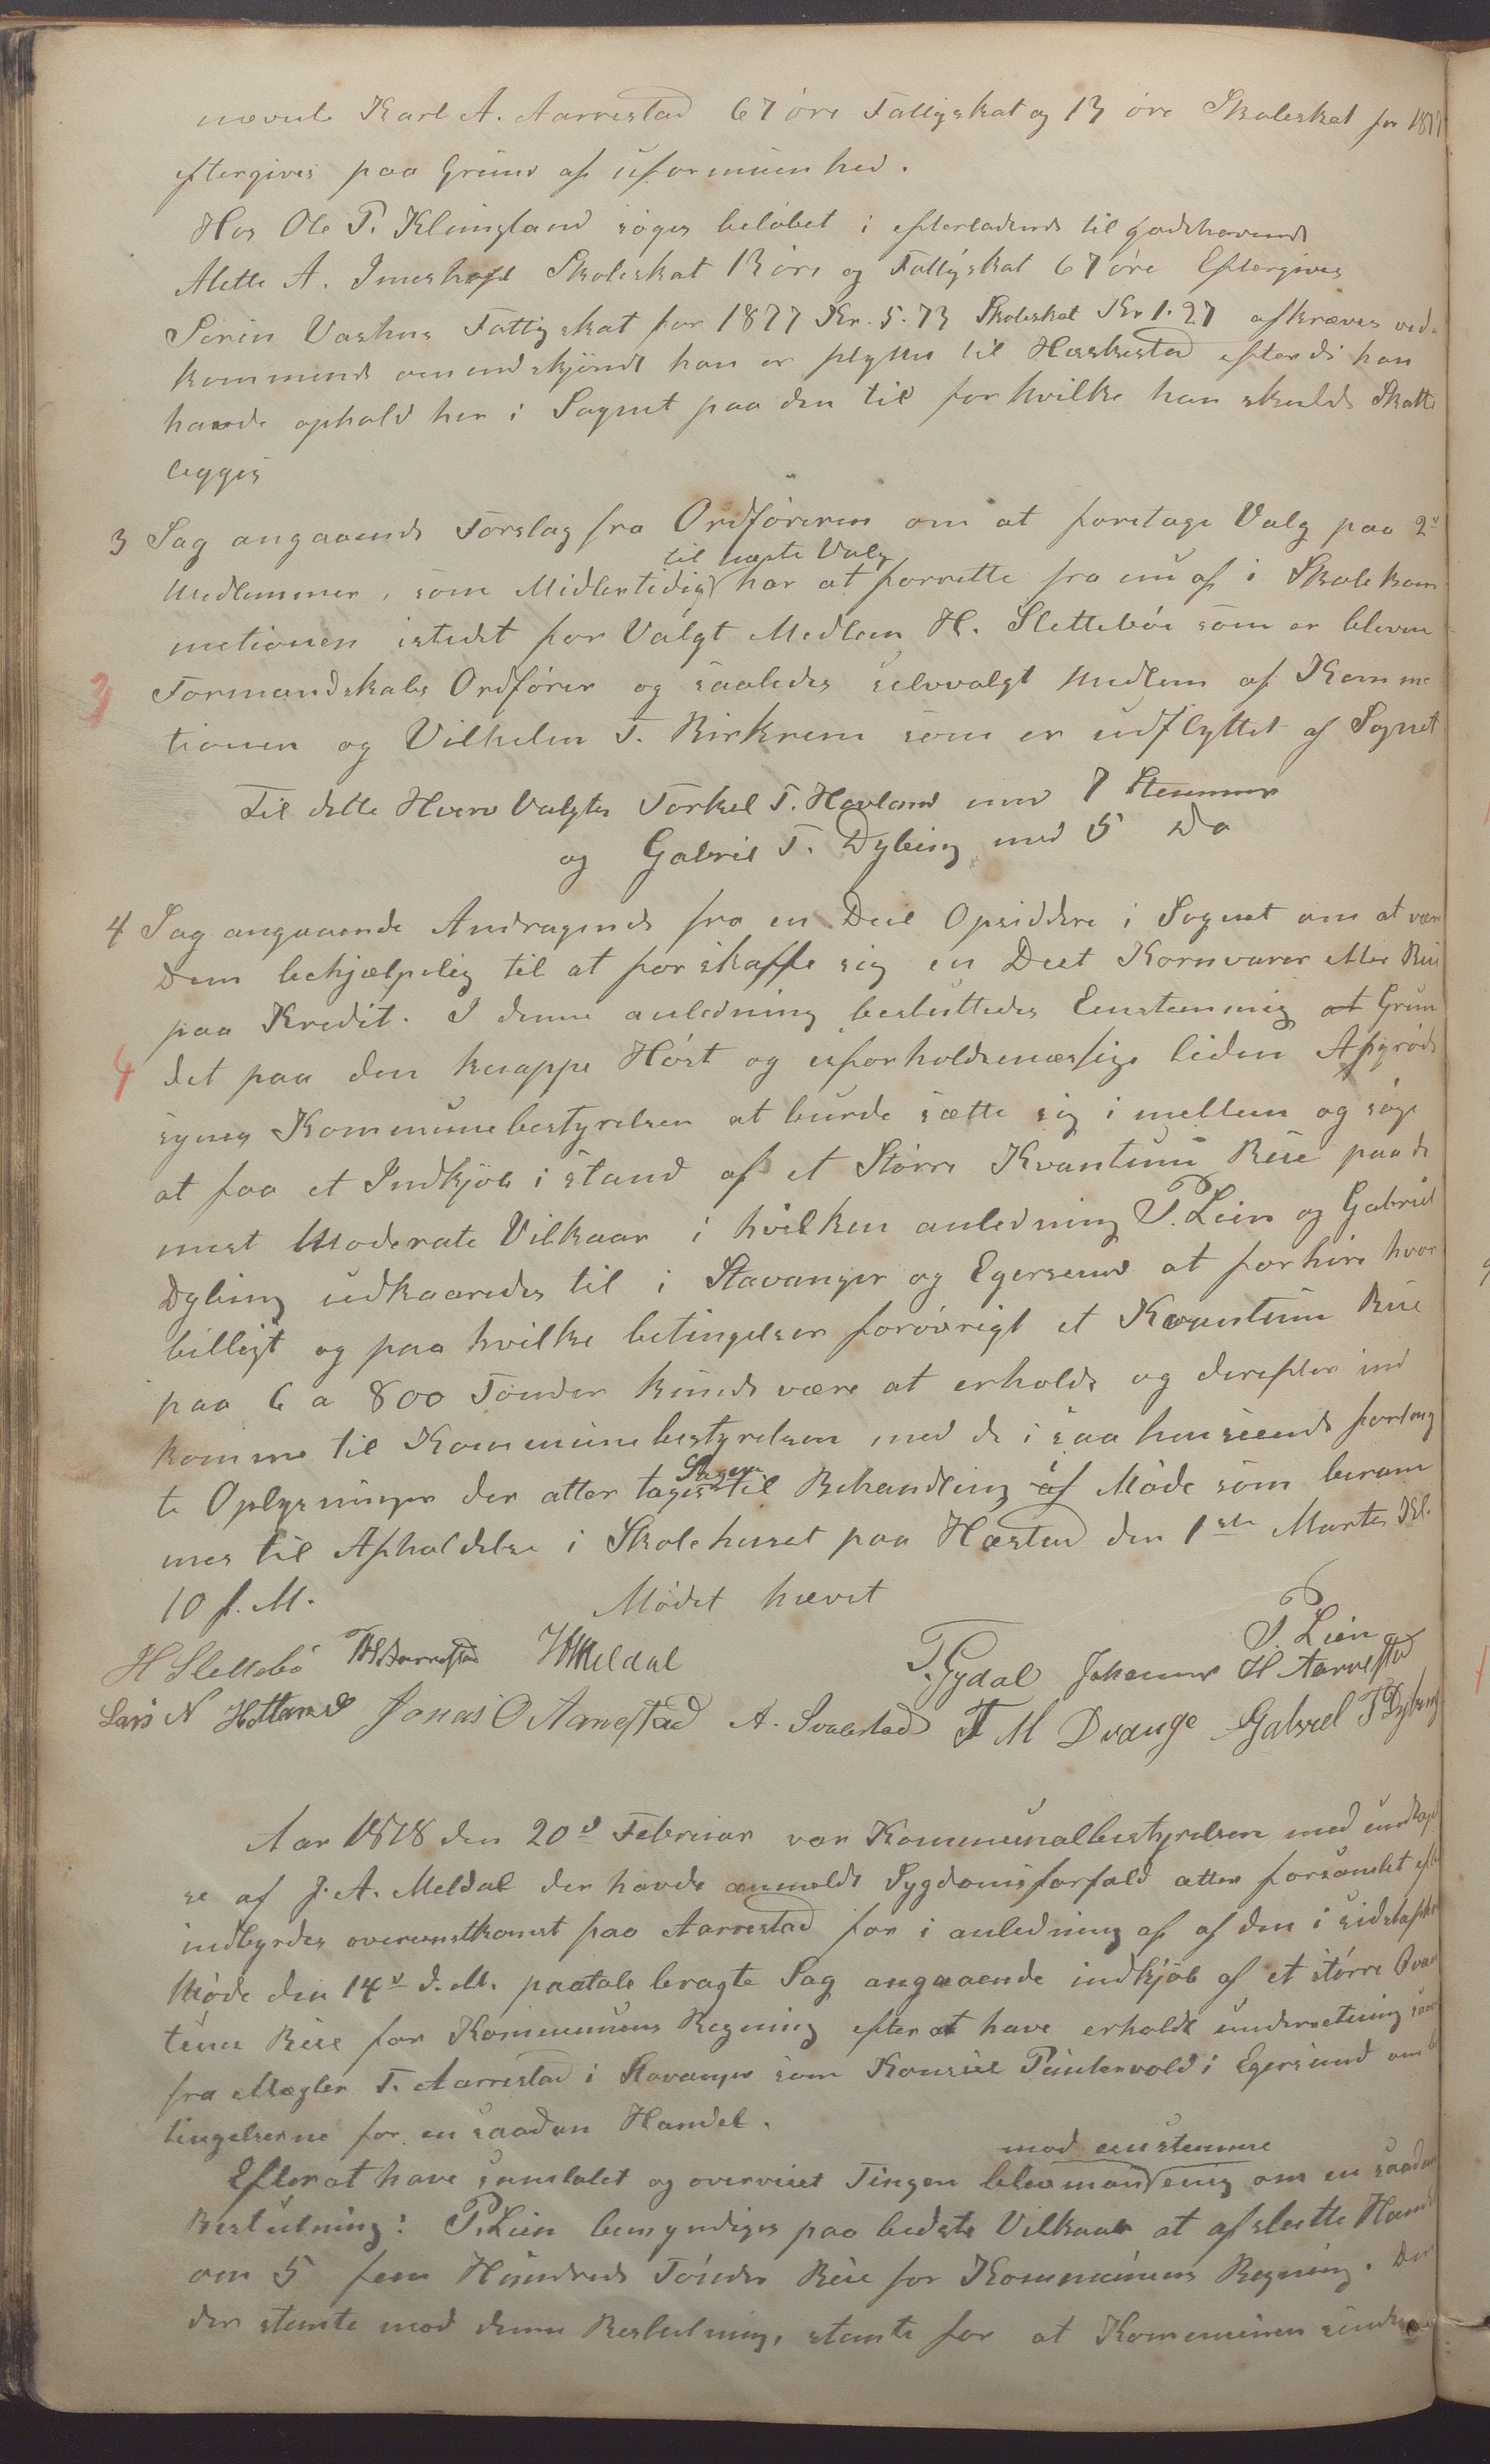 nævnte Karl A. Aarrestad 67 öre Fattigskat og 13 öre Skoleskat for 1877
eftergives paa Grund af uformuenhed.
Hos Ole P. Klungland söges belöbet i efterladende tilgodehavende
Alette A. Skoleskat 13 öre og Fattigskat 67 öre Eftergives
Sörin Vashus Fattigskat for 1877 Kr. 5.73 Skoleskat Kr 1.27 afkræves ved-
kommende omendskjöndt han er flyttet til Heskestad efterdi han
havde ophold her i Sognet paa den tid for hvilke han skulde Skatte
legges
3 Sag angaaende Forslag fra Ordföreren om at foretage Valg paa 2de
til næste Valg
Medlemmer, som Midlertidigt har at forrette fra nu af i Skolekom
metionen istedet for Valgt Medlem H. Slettebö som er bleven
3 Formandskabs Ordförer og saaledes selvvalgt Medlem af Komme
tionen og Vilhelm T. Birkrem som er udflyttet af Sognet
Til dette Hverv Valgtes Torkel T. Hovland med 7 Stemmer
og Gabriel T. Dybing med 5 Do
4 Sag angaaende Andragende fra en Deel Opsiddere i Sognet om at være
Dem behjælpelig til at forskaffe sig en Deel Kornvarer eller Bug
paa Kredit. I denne anledning besluttedes Eenstemmig at Grun
4 det paa den knappe Höst og uforholdsmæssige liden Afgröde
synes Kommunebestyrelsen at burde sætte sig i mellem og söge
at faa et Indkjöb i stand af et Större Kvantum paa de
mest Moderate Vilkaar i hvilken anledning P. Lien og Gabriel
Dybing udkaaredes til i Stavanger og Egersund at forhöre hvor
billigt og paa hvilke betingelser forövrigt et Kvantum
paa 6 a 800 Tönder kunde være at erholde og derefter ind
komme til Kommunebestyrelsen med de i saa henseende forlang
Sagen
te Oplysninger der atter tages til Behandling i Möde som beram
mes til Afholdelse i Skolehuset paa Hæstad den 1ste Marts Kl.
10 f. M. Mödet hævet
P. Lien
H Slettebö T H Aarrestad Meldal T. Gydal Johannes H Aarrestad
Lars N Hetland Jonas O Aarrestad A. Svalestad T M Drange Gabriel T Dybing
Aar 1878 den 20de Februar var Kommunalbestyrelsen med undtagel
se af J. A. Meldal der havde anmeldt Sygdomsforfald atter forsamlet efter
indbyrdes overeenskomst paa Aarrestad for i anledning af af den i sidstafholdte
Möde den 14de d. M. paatale bragte Sag angaaende indkjöb af et större Qvan
tum for Kommunens Regning efter at have erholdt underretning saavel
fra Mægler T. Aarrestad i Stavanger som Konsul Puntervold i Egersund om be
tingelserne for en saadan Handel.
mod een stemme
Efter at have samtalet og overveiet Tingen blev man enig om en saadan
Beslutning: P. Lien bemyndiges paa bedste Vilkaar at afslutte Handel
om 5 fem Hundrede Tönder for Kommunens Regning. Den
der stemte mod denne Beslutning, stemte for at Kommunen